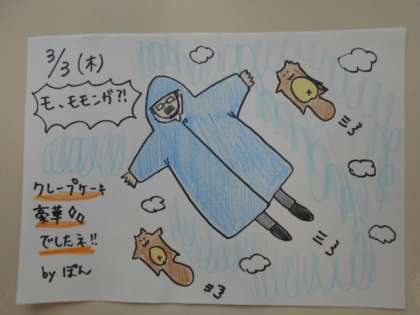 3/3(木)
モ、モモンガ?!
クレープケーキ
豪華
でしたネ!!
by ぽん